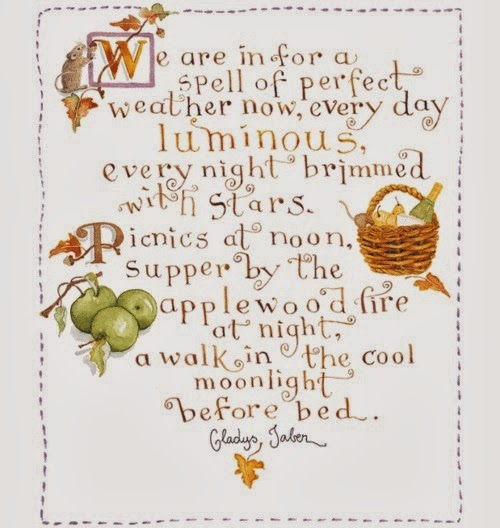 We are in for a
spell of perfect
weather now, every day
luminous,
every night brimmed
with stars.
Picnics at noon,
supper by the
applewood fire
at night,
a walk in the cool
moonlight
before bed.
Gladys Taber